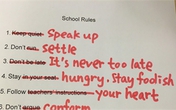 School Rules
1. Keep quiet. Speak up
2. Don't run. settle
3. Don't be late It's never too late
4. Stay in your seat. hungry. Stay foolish
5. Follow teachers' instructions your heart
6. Don't argue conform